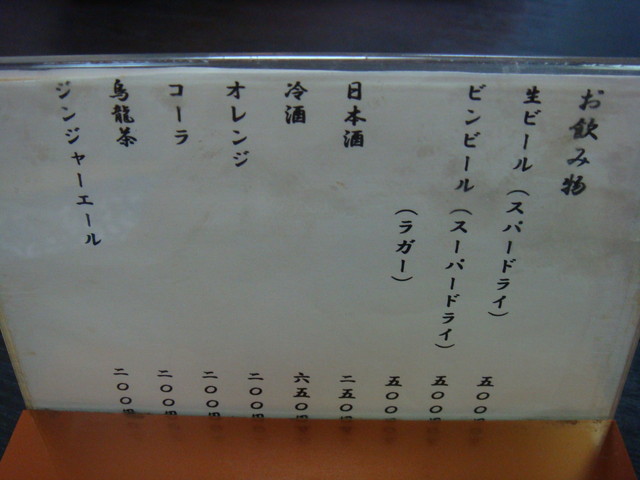 お飲み物
生ビール（スパードライ） 五〇〇円
ビンビール（スーパードライ） 五〇〇円
（ラガー） 五〇〇円
日本酒 二五〇円
冷酒 六五〇円
オレンジ 二〇〇円
コーラ 二〇〇円
烏龍茶 二〇〇円
ジンジャーエール 二〇〇円